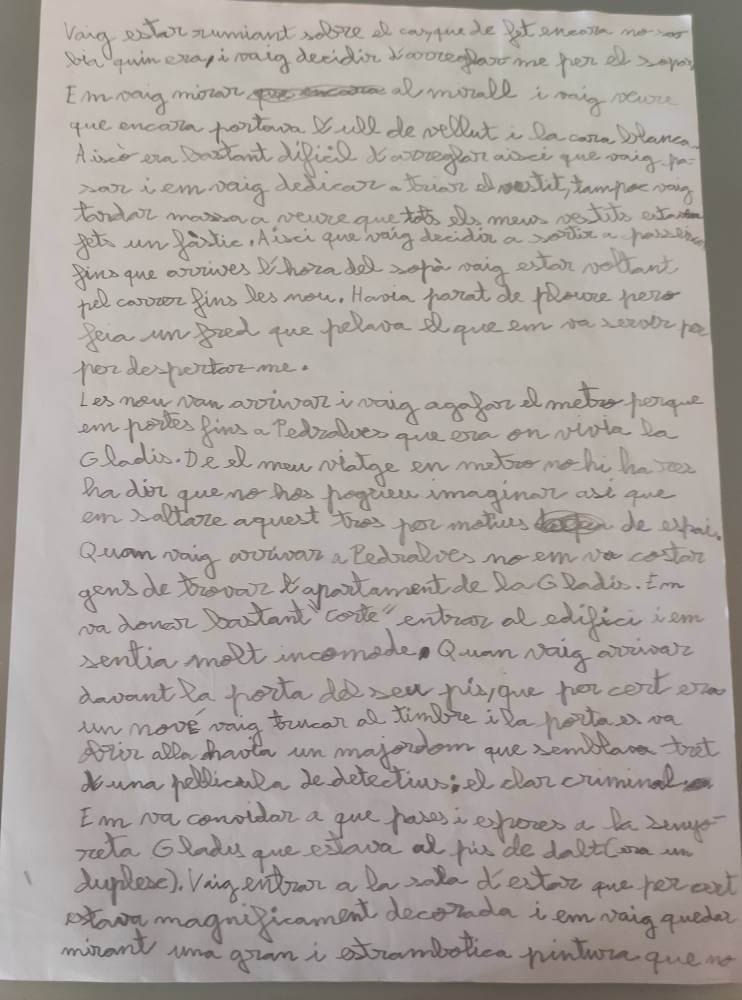 Vaig estar rumiant sobre el cas, que de fet encara no sa
bia quin era, i vaig decidir d'arreglarme per el sopar,
Em vaig mirar que encara al mirall i vaig veure
que encara portava l'ull de vellut i la cara blanca.
Això era bastant difícil d'arreglar aisci que vaig pa-
sar i em vaig dedicar a triar el vestit, tampoc vaig
tardar massa a veure que tots els meus vestits estaven
fets un fàstic. Aisci que vaig decidir a sortir a passe
fins que arrives l'hora del sopà vaig estar voltant
pel carrer fins les nou. Havia parat de ploure pero
feia un fred que pelava el que em va servir per
per despertar-me.
Les nou van arrivar i vaig agafar el metro perque
em portes fins a Pedralves que era on vivia la
Gladis. De el meu viatge en metro no hi ha res
ha dir que no hos pogueu imaginar asi que
em saltare aquest tros per motius de espai.
Quan vaig arrivar a Pedralves no em va costar
gens de trovar l'apartament de la Gladis. Em
va donar bastant "corte" entrar al edifici i em
sentia molt incomode. Quan vaig arrivar
davant la porta del seu pis, que per cert era
un nové vaig trucar al timbre i la porta es va
obrir alla havia un majordom que semblava tret
d'una pellicula de detectius; el clar criminal
Em va convidar a que pases i esperes a la senyo-
reta Gladis que estava al pis de dalt (era un
duplesc). Vaig entrar a la sala d'estar que per cert
estava magnificament decorada i em vaig quedar
mirant una gran i estrambotica pintura que no